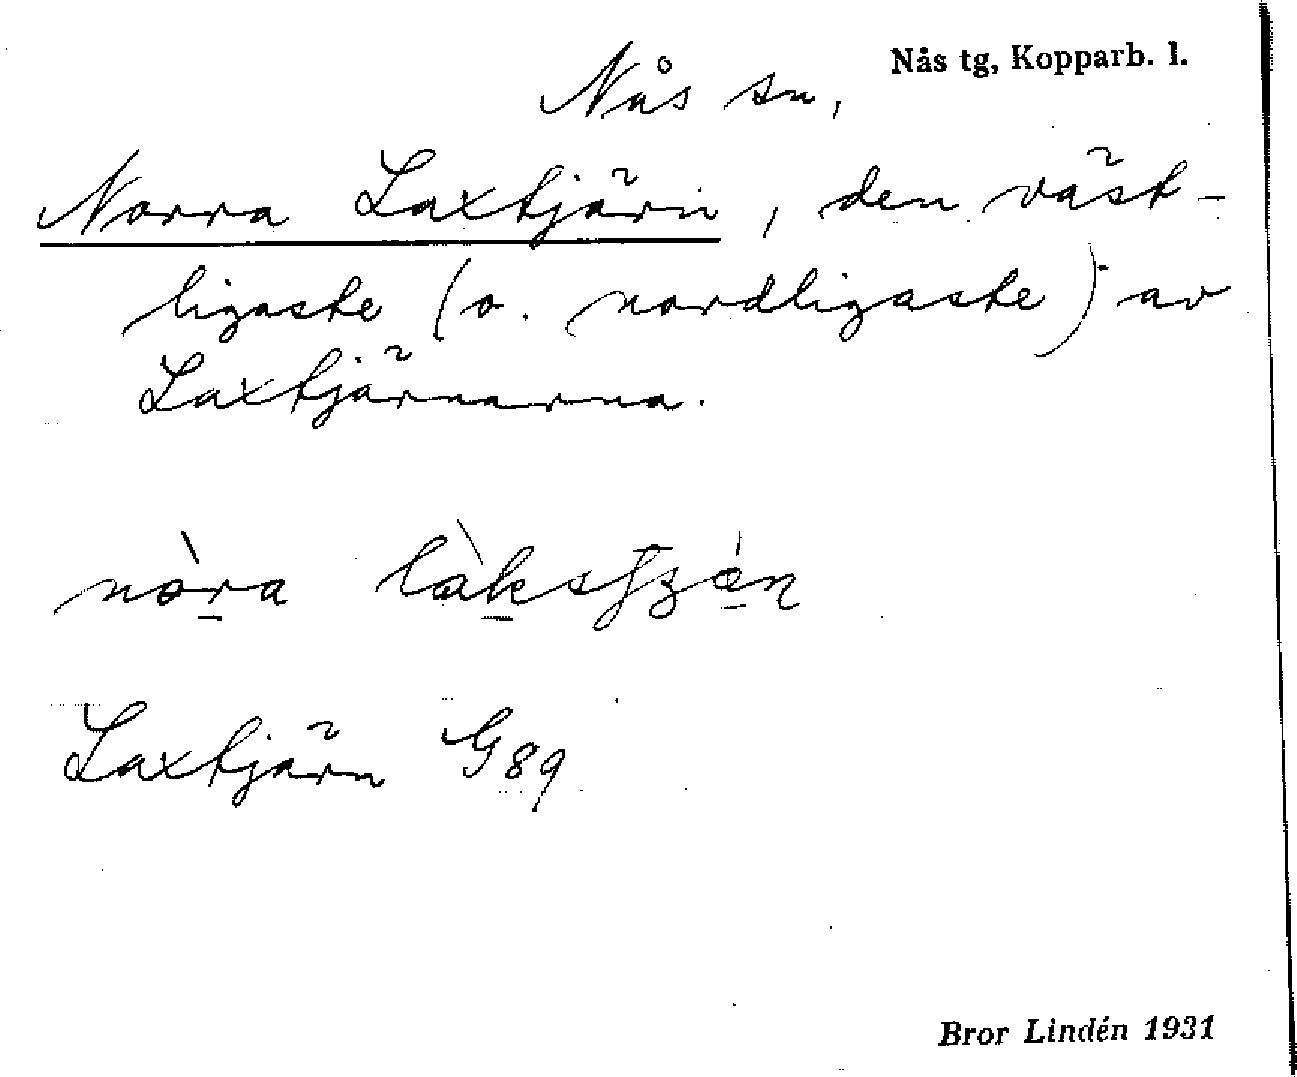 Nås tg, Kopparb. l.
Nås sn,
Norra Laxtjärn, den väst-
ligaste (o. nordligaste) av
Laxtjärnarna.
nòra
Laxtjärn G89
Bror Lindén 1931